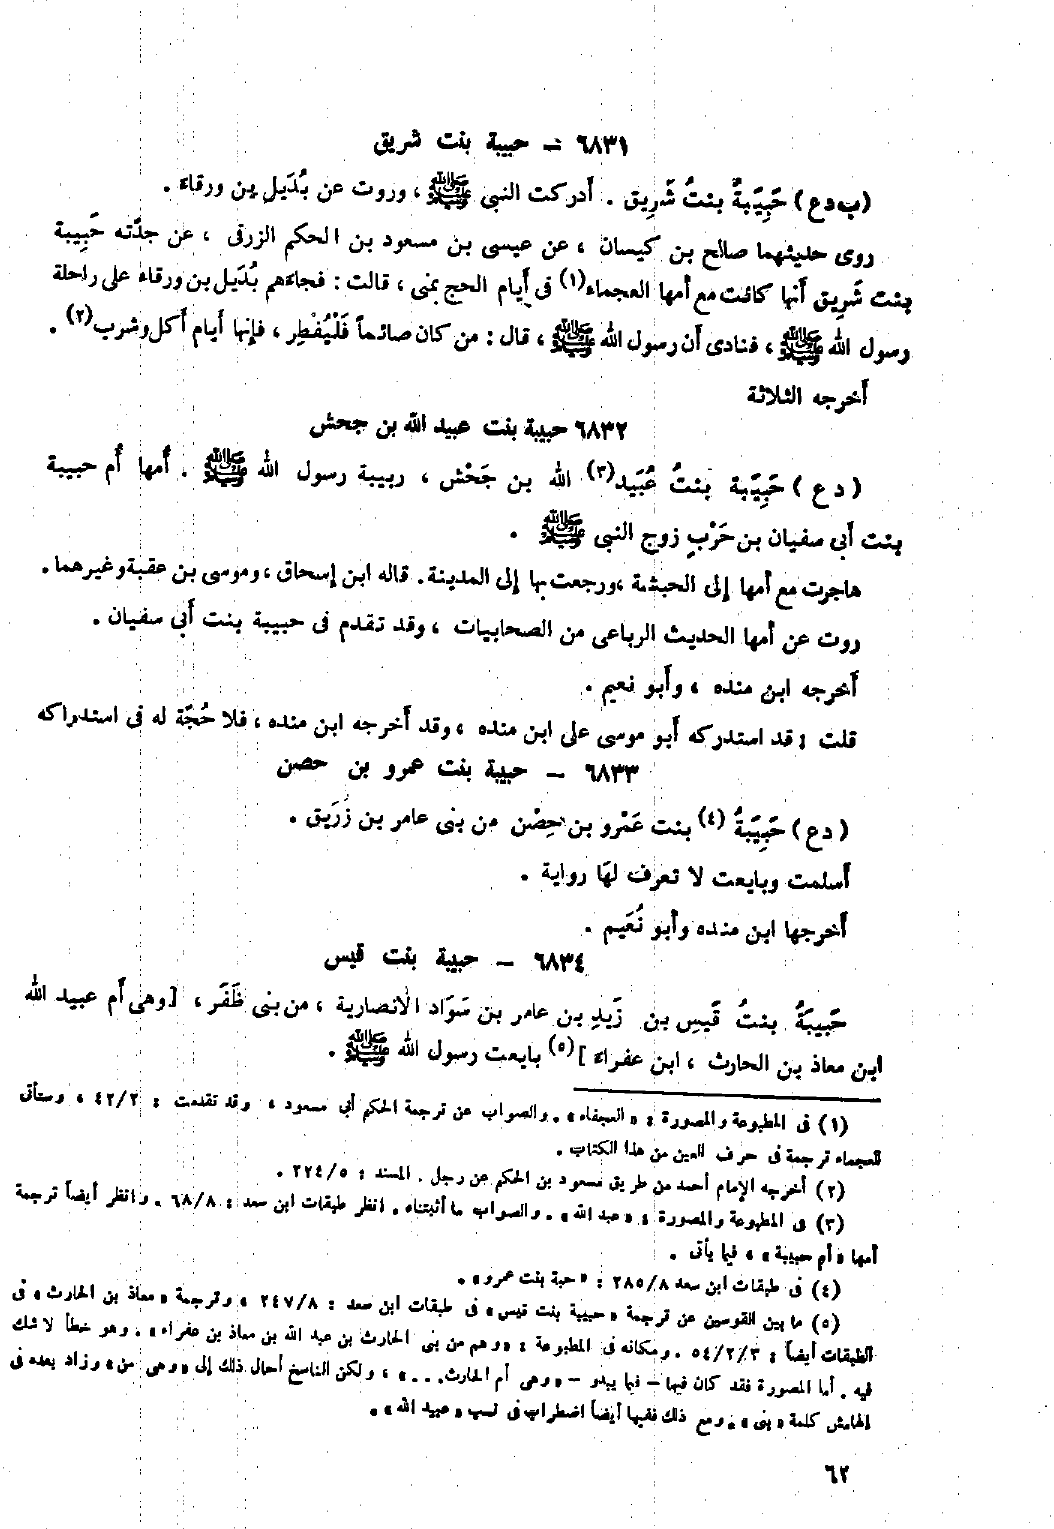 ٦٨٣١ – حبيبة بنت شريق
(ب د ع) حَبِيبَةُ بنتُ شَرِيق . أدركت النبى ﷺ ، وروت عن بُدَيل بن ورقاء .
روى حديثهما صالح بن كيسان ، عن عيسى بن مسعود بن الحكم الزرقى ، عن جدّته حَبِيبة
بنت شَرِيق أنها كانت مع أمها العجماء(١) فى أيام الحج بمنى ، قالت : فجاءهم بُدَيل بن ورقاء على راحلة
رسول الله ﷺ ، فنادى أن رسول الله ﷺ ، قال : من كان صائماً فَلْيُفْطِر ، فإنها أيام أكل وشرب(٢) .
أخرجه الثلاثة
٦٨٣٢ حبيبة بنت عبيد الله بن جحش
( د ع ) حَبِيبَة بنتُ عُبَيد(٣) الله بن جَحْش ، ربيبة رسول الله ﷺ . أمها أُم حبيبة
بنت أبى سفيان بن حَرْبٍ زوج النبى ﷺ .
هاجرت مع أمها إلى الحبشة ، ورجعت بها إلى المدينة . قاله ابن إسحاق ، وموسى بن عقبة وغيرهما .
روت عن أمها الحديث الرباعى من الصحابيات ، وقد تقدم فى حبيبة بنت أبى سفيان .
أخرجه ابن منده ، وأبو نعيم .
قلت : قد استدركه أبو موسى على ابن منده ، وقد أخرجه ابن منده ، فلا حُجَّة له فى استدراكه
٦٨٣٣ – حبيبة بنت عمرو بن حصن
( د ع ) حَبِيبَةُ (٤) بنت عَمْرو بن حِصْن من بنى عامر بن زُرَيق .
أسلمت وبايعت لا تعرف لهَا رواية .
أخرجها ابن منده وأبو نُعَيم .
٦٨٣٤ – حبيبة بنت قيس
حَبيبَةُ بنتُ قَيسِ بن زَيدِ بن عامر بن سَوَاد الأنصارية ، من بنى ظَفَر ، [ وهى أم عبيد الله
ابن معاذ بن الحارث ، ابن عفراء ](٥) بايعت رسول الله ﷺ .
(١) فى المطبوعة والمصورة : « العجفاء » . والصواب عن ترجمة الحكم أبى مسعود ، وقد تقدمت : ٤٢/٢ ، وستأتى
للعجماء ترجمة فى حرف العين من هذا الكتاب .
(٢) أخرجه الإمام أحمد من طريق مسعود بن الحكم عن رجل . المسند : ٢٢٤/٥ .
(٣) فى المطبوعة والمصورة : « عبد الله » . والصواب ما أثبتناه . انظر طبقات ابن سعد : ٦٨/٨ . وانظر أيضاً ترجمة
أمها « أم حبيبة » ، فيما يأتى .
(٤) فى طبقات ابن سعد ٢٨٥/٨ : « حبة بنت عمرو » .
(٥) ما بين القوسين عن ترجمة « حبيبة بنت قيس » فى طبقات ابن سعد : ٢٤٧/٨ ، وترجمة « معاذ بن الحارث » فى
الطبقات أيضاً : ٥٤/٢/٣ . ومكانه فى المطبوعة : « وهم من بنى الحارث بن عبد الله بن معاذ بن عفراء » . وهو خطأ لا شك
فيه . أما المصورة فقد كان فيها – فيما يبدو – « وهى أم الحارث . . . » ، ولكن الناسخ أحال ذلك إلى « وهى من » وزاد بعده فى
الهامش كلمة « بنى » . ومع ذلك ففيها أيضاً اضطراب فى نسب « عبيد الله » .
٦٢